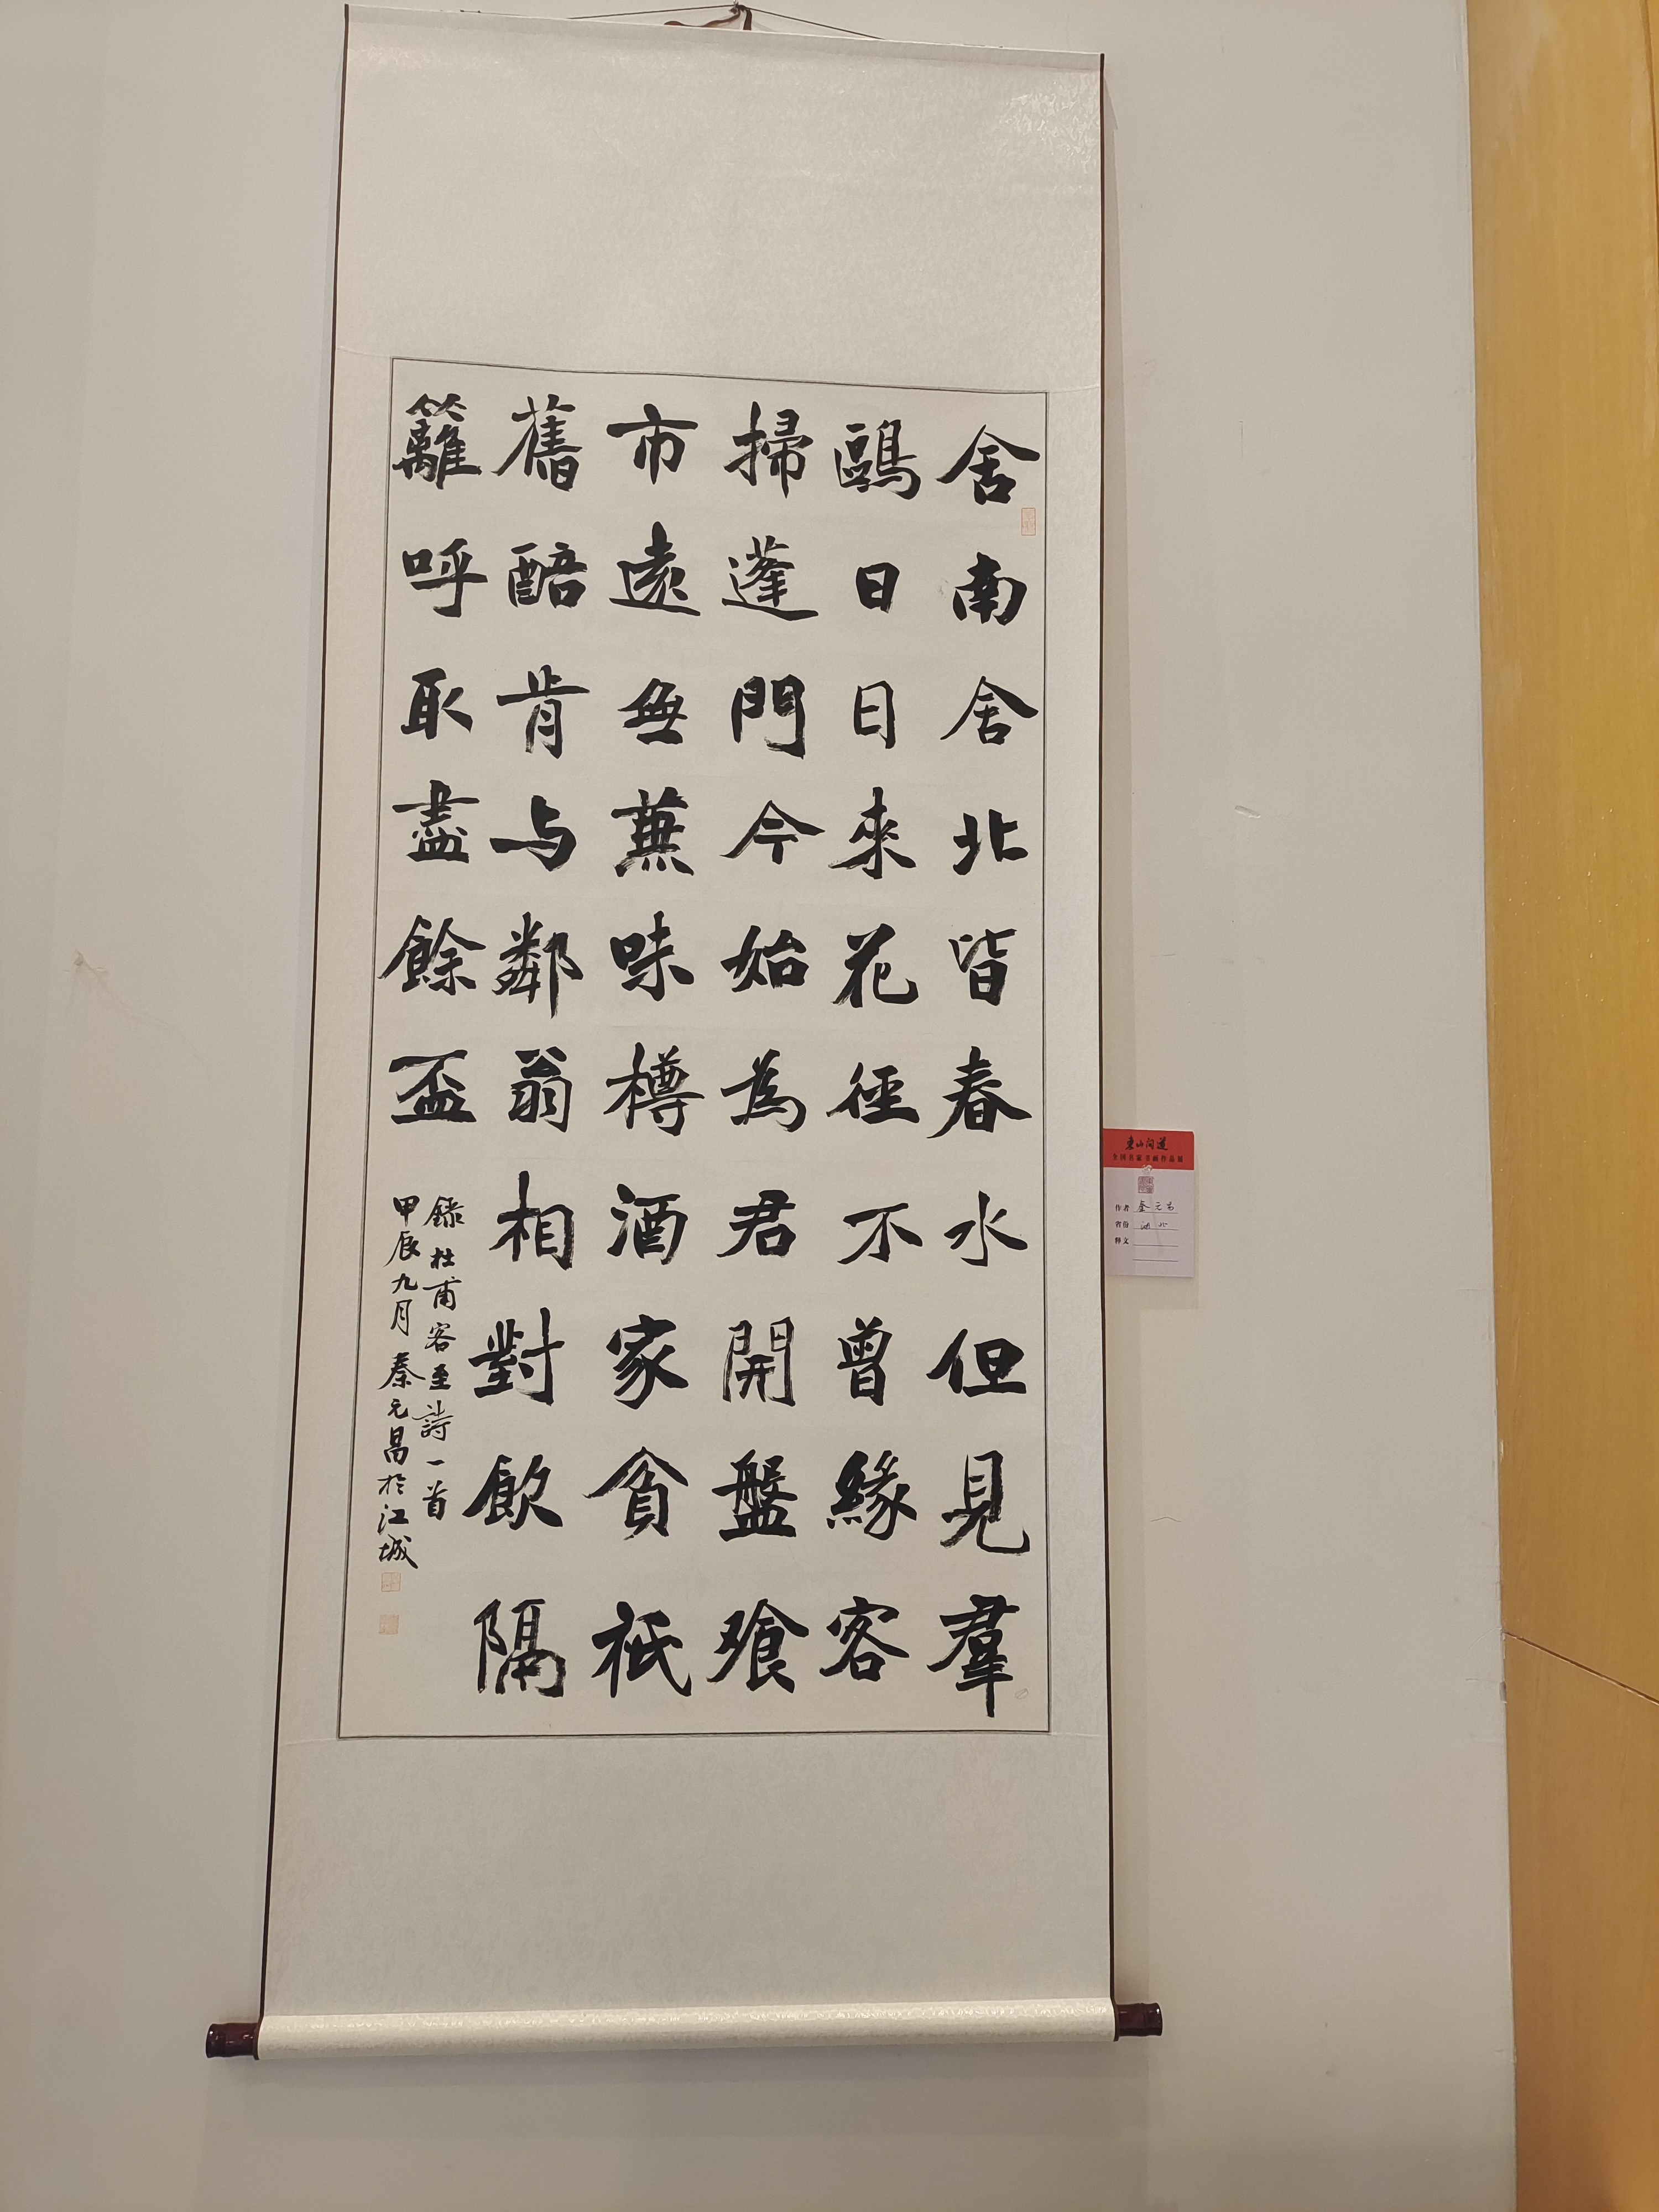 舍南舍北皆春水但見羣
鷗日日來花徑不曾緣客
掃蓬門今始為君開盤飱
市遠無蒹味樽酒家貧祇
舊醅肯与鄰翁相對飲隔
籬呼取盡餘盃
錄杜甫客至詩一首
甲辰九月秦元昌於江城
東山问道
作者 秦元昌
省份 湖北
释文